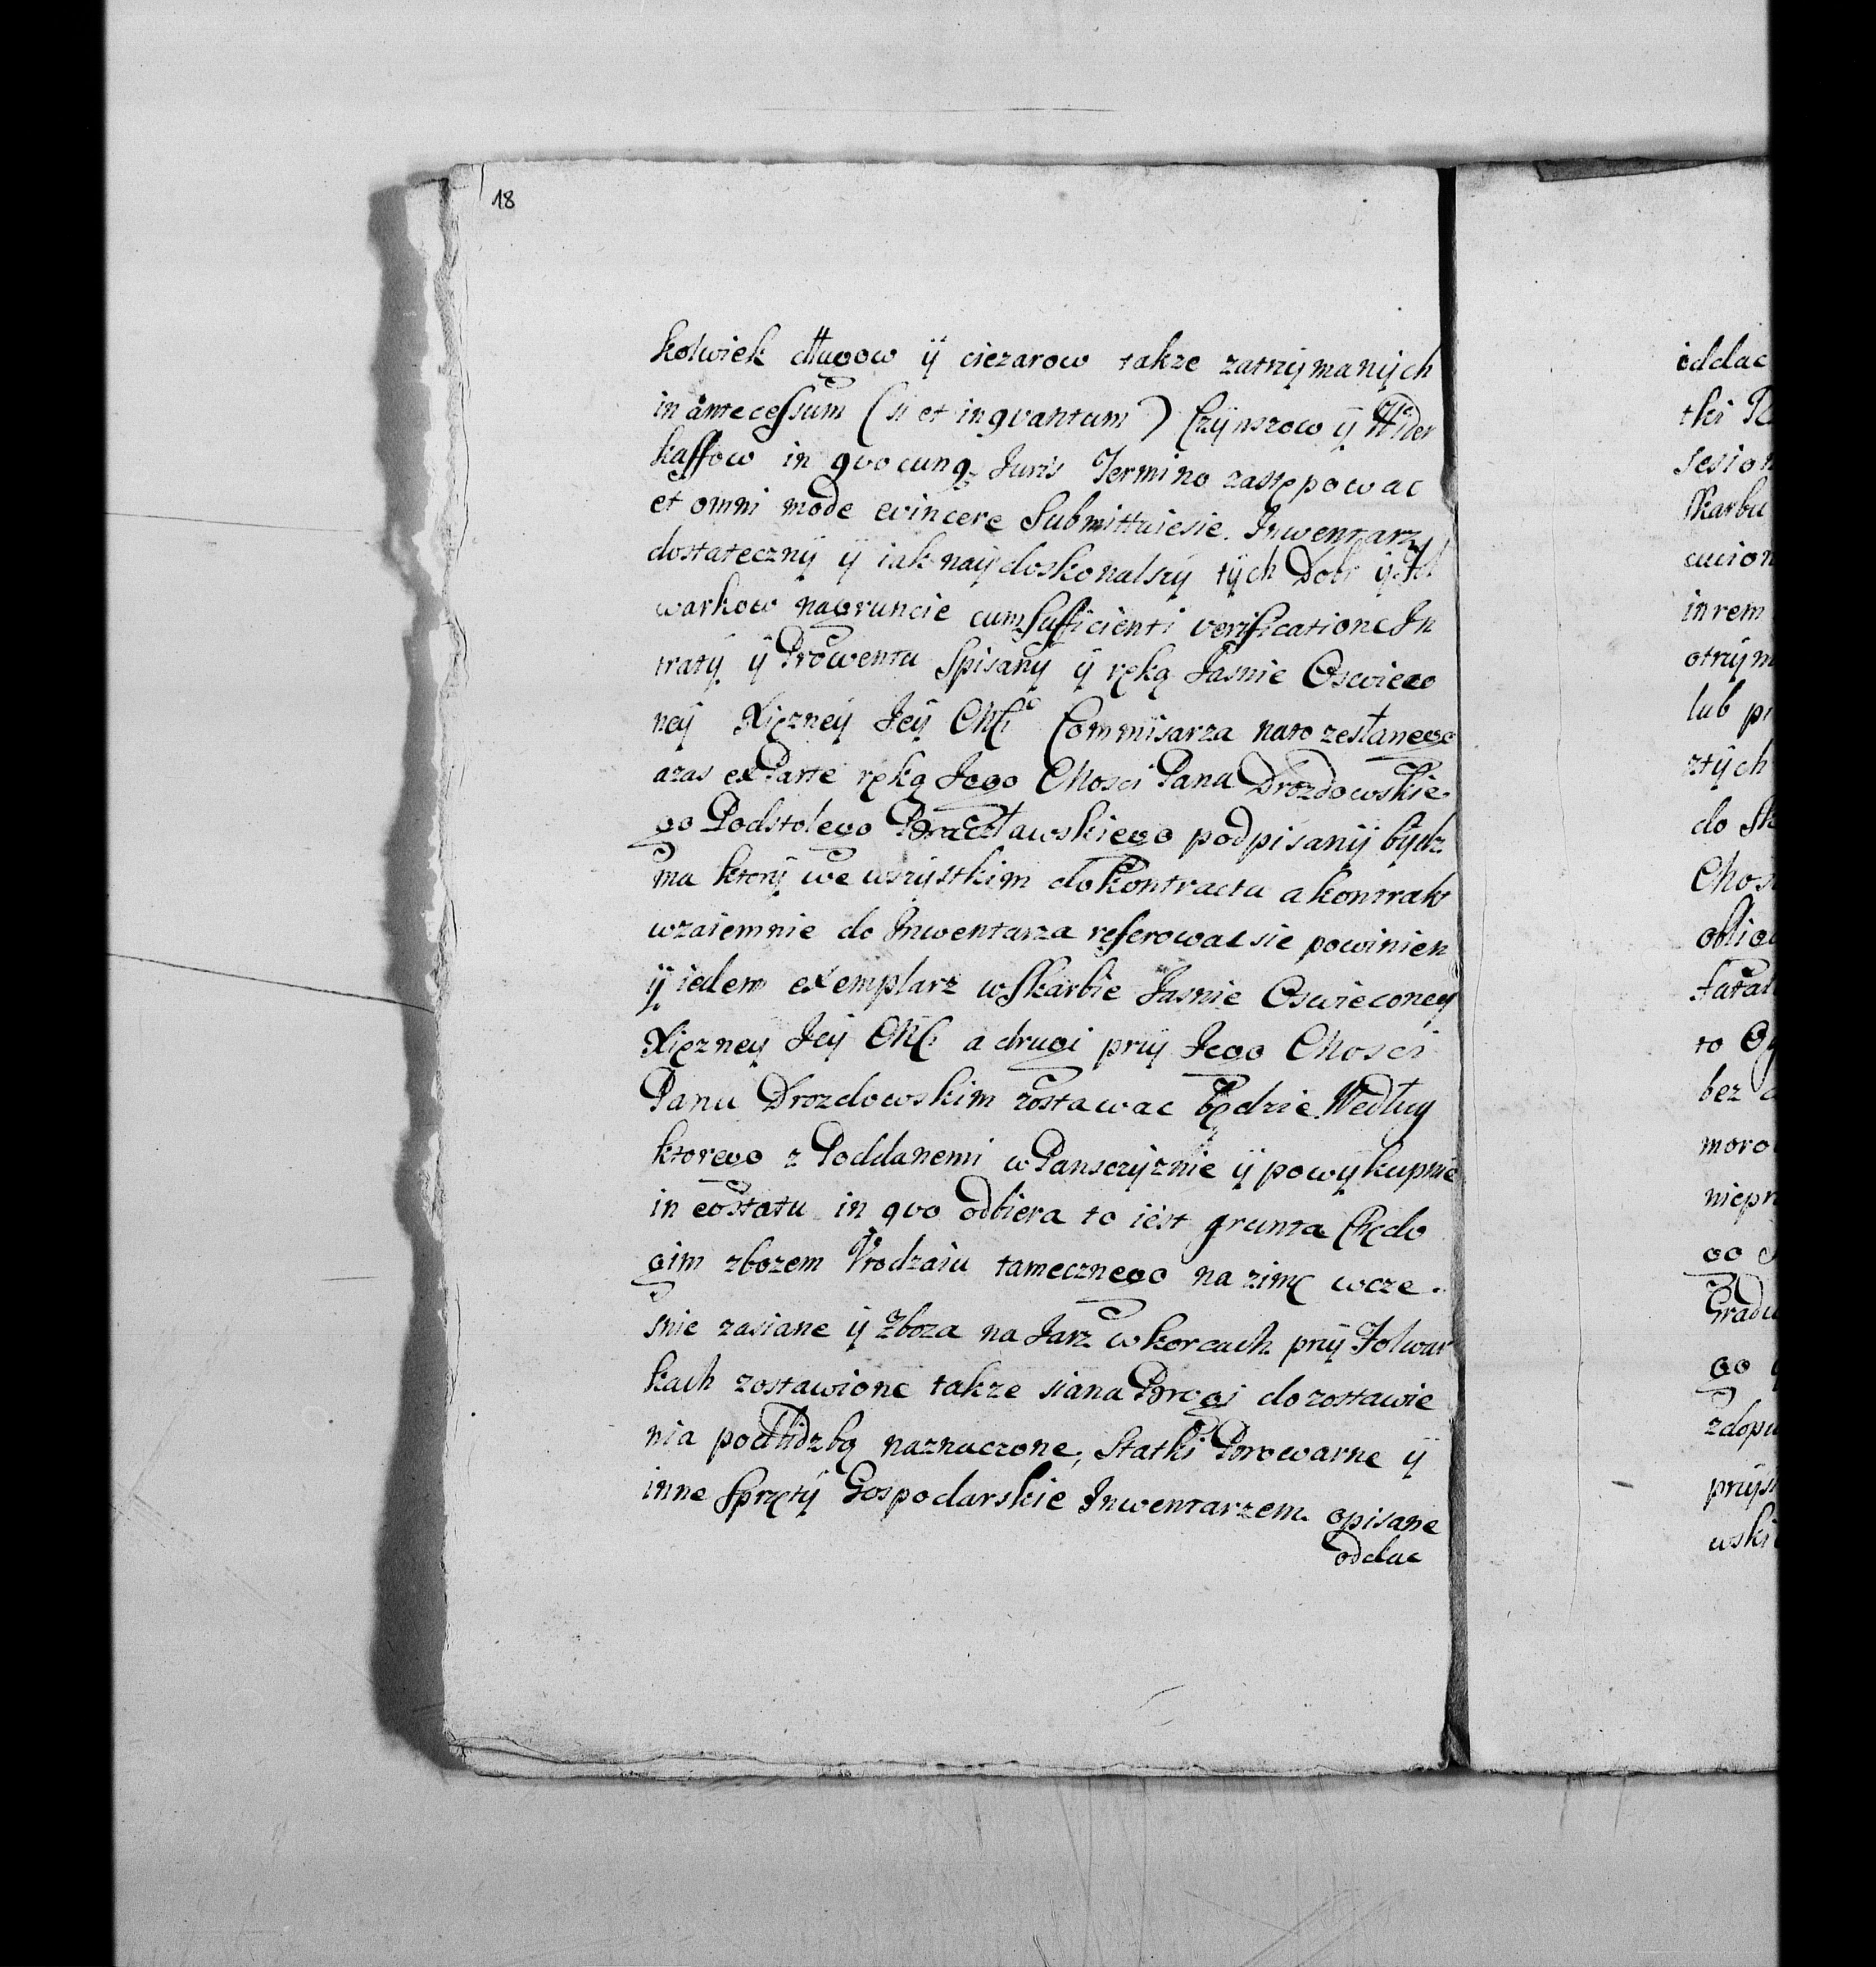 18
kolwiek długow ÿ ciezarow takze zatrzÿmanÿch
in antecessum (si et in qvantum) Czÿnszow ÿ Wider
kaffow in qvocunq, Juris Termino zastępowac
et omni mode evincere Submittuiesie. Inwentarz
dostatecznÿ ÿ iak naÿdoskonalszÿ tÿch Dobr ÿ Fol
warkow nagruncie cum Sufficienti verificatione In
tratÿ ÿ Prowentu Spisanÿ ÿ ręką Jasnie Oswieco
neÿ Xięzneÿ Jeÿ Mci Commisarza nato zesłanego
azas ex Parte ręką Jego Mosci Pana Drozdowskie
go Podstolego Bracławskiego podpisanÿ bÿdz
ma ktorÿ we wszÿstkim do Kontractu a kontrakt
wzaiemnie do Inwentarza referowac sie powinien
ÿ ieden exemplarz w Skarbie Jasnie Oswieconeÿ
Xięzneÿ Jeÿ Mci a drugi przÿ Jego Mosci
Panu Drozdowskim zostawac będzie Według
ktorego z Poddanemi w Pansczÿznie ÿ powÿkupnie
in eo statu in qvo odbiera to iest grunta Chędo
gim zbozem Vrodzaiu tamecznego na zimę wcze
snie zasiane ÿ Zboza na Jarz w korcach przÿ Folwar
kach zostawione takze siana Brogi do zostawie
nia pod liczbą naznaczone, Statki Browarne ÿ
inne Sprzętÿ Gospodarskie Inwentarzem opisane
oddac
oddac
sesion
Skarbu
in rem
otrzÿm
lub
ztÿch
do
to
bez
moro
niepr
go
go
zdopu
przÿs
wski